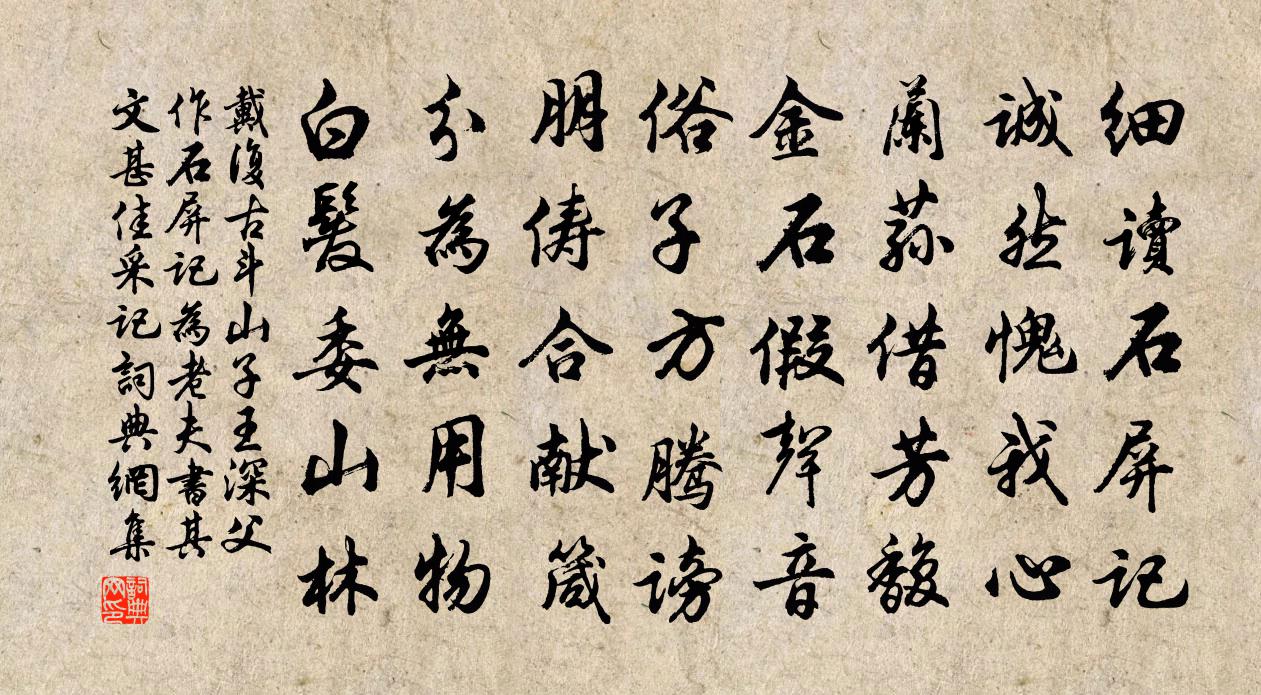 细讀石屏记
誠然愧我心
蘭蓀借芳馥
金石假聲音
俗子方騰謗
朋儔合献箴
分為無用物
白髮委山林
戴復古斗山子王深父
作石屏记為老夫書其
文甚佳采记詞典網集
詞典網印